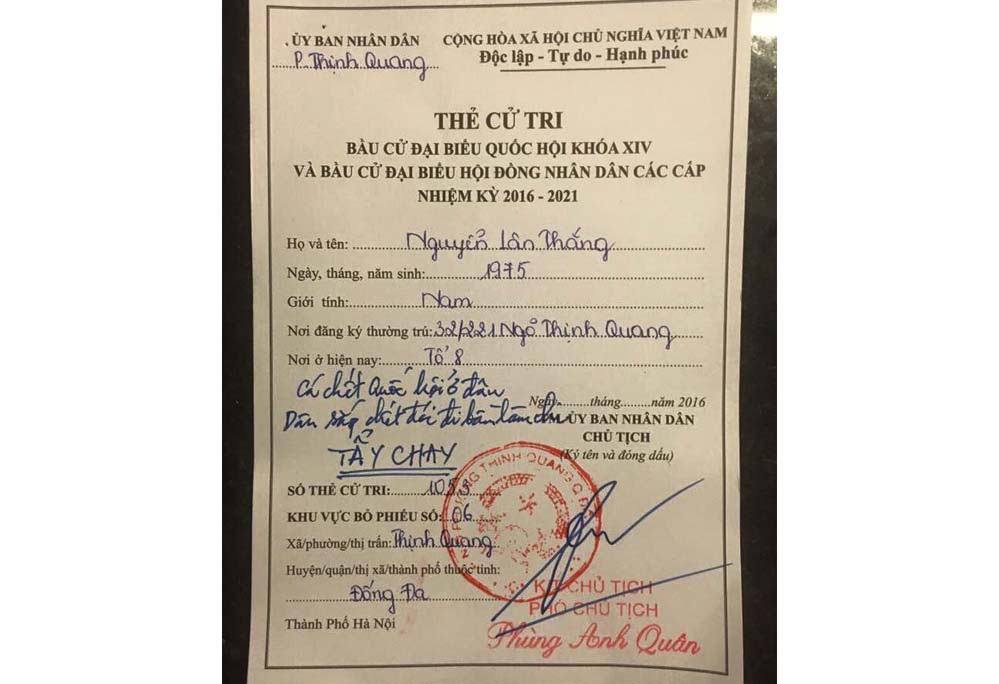 ỦY BAN NHÂN DÂN
P. Thịnh Quang
CỘNG HÒA XÃ HỘI CHỦ NGHĨA VIỆT NAM
Độc lập - Tự do - Hạnh phúc
THẺ CỬ TRI
BẦU CỬ ĐẠI BIỂU QUỐC HỘI KHÓA XIV
VÀ BẦU CỬ ĐẠI BIỂU HỘI ĐỒNG NHÂN DÂN CÁC CẤP
NHIỆM KỲ 2016 - 2021
Họ và tên: Nguyễn Lân Thắng
Ngày, tháng, năm sinh: 1975
Giới tính: Nam
Nơi đăng ký thường trú: 32/221 Ngõ Thịnh Quang
Nơi ở hiện nay: Tổ 8
Cá chết Quốc hội ở đâu
Dân sắp chết đói đi bầu làm chi
TẨY CHAY
Ngày.........tháng.........năm 2016
TM. ỦY BAN NHÂN DÂN
CHỦ TỊCH
(Ký tên và đóng dấu)
SỐ THẺ CỬ TRI: 1053
KHU VỰC BỎ PHIẾU SỐ: 06
Xã/phường/thị trấn: Thịnh Quang
Huyện/quận/thị xã/thành phố thuộc tỉnh:
Đống Đa
Thành Phố Hà Nội
PHƯỜNG THỊNH QUANG
KT. CHỦ TỊCH
PHÓ CHỦ TỊCH
Phùng Anh Quân